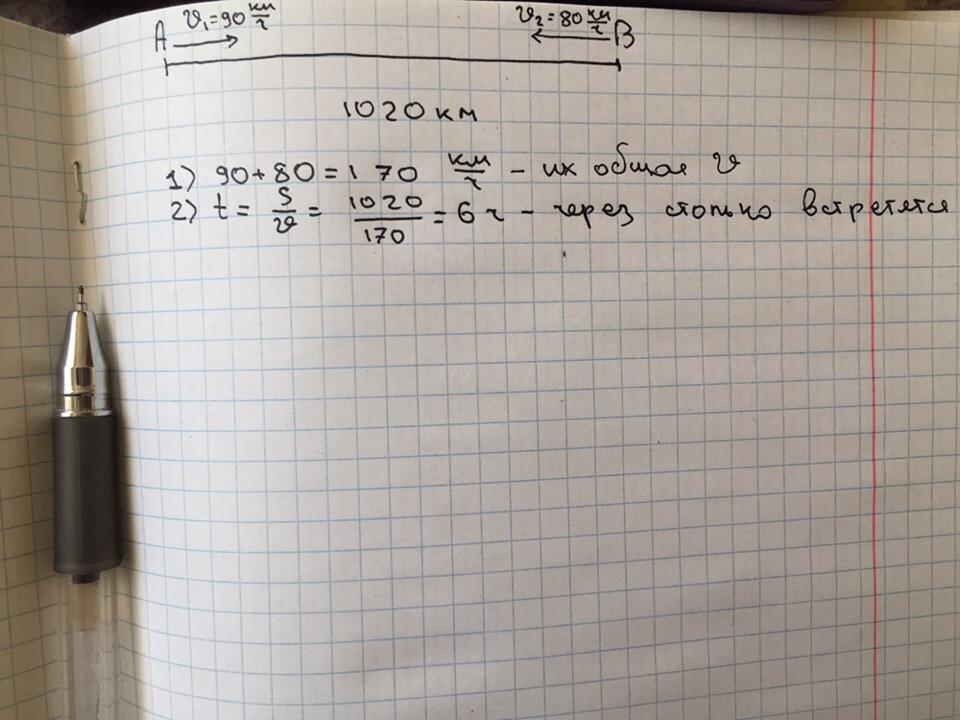 A v₁=90 км/ч v₂=80 км/ч B
1020 км
1) 90+80=170 км/ч - их общая v
2) t = S/v = 1020/170 = 6 ч - через столько встретятся